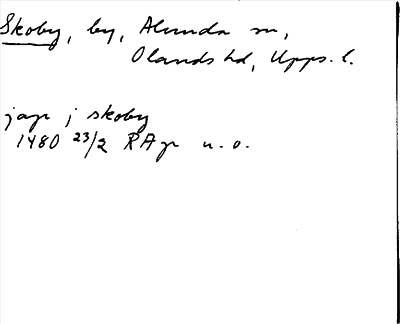 Skoby, by, Alunda sn,
Olands hd, Upps. l.
jap j skoby
1480 23/2 RAp u. o.